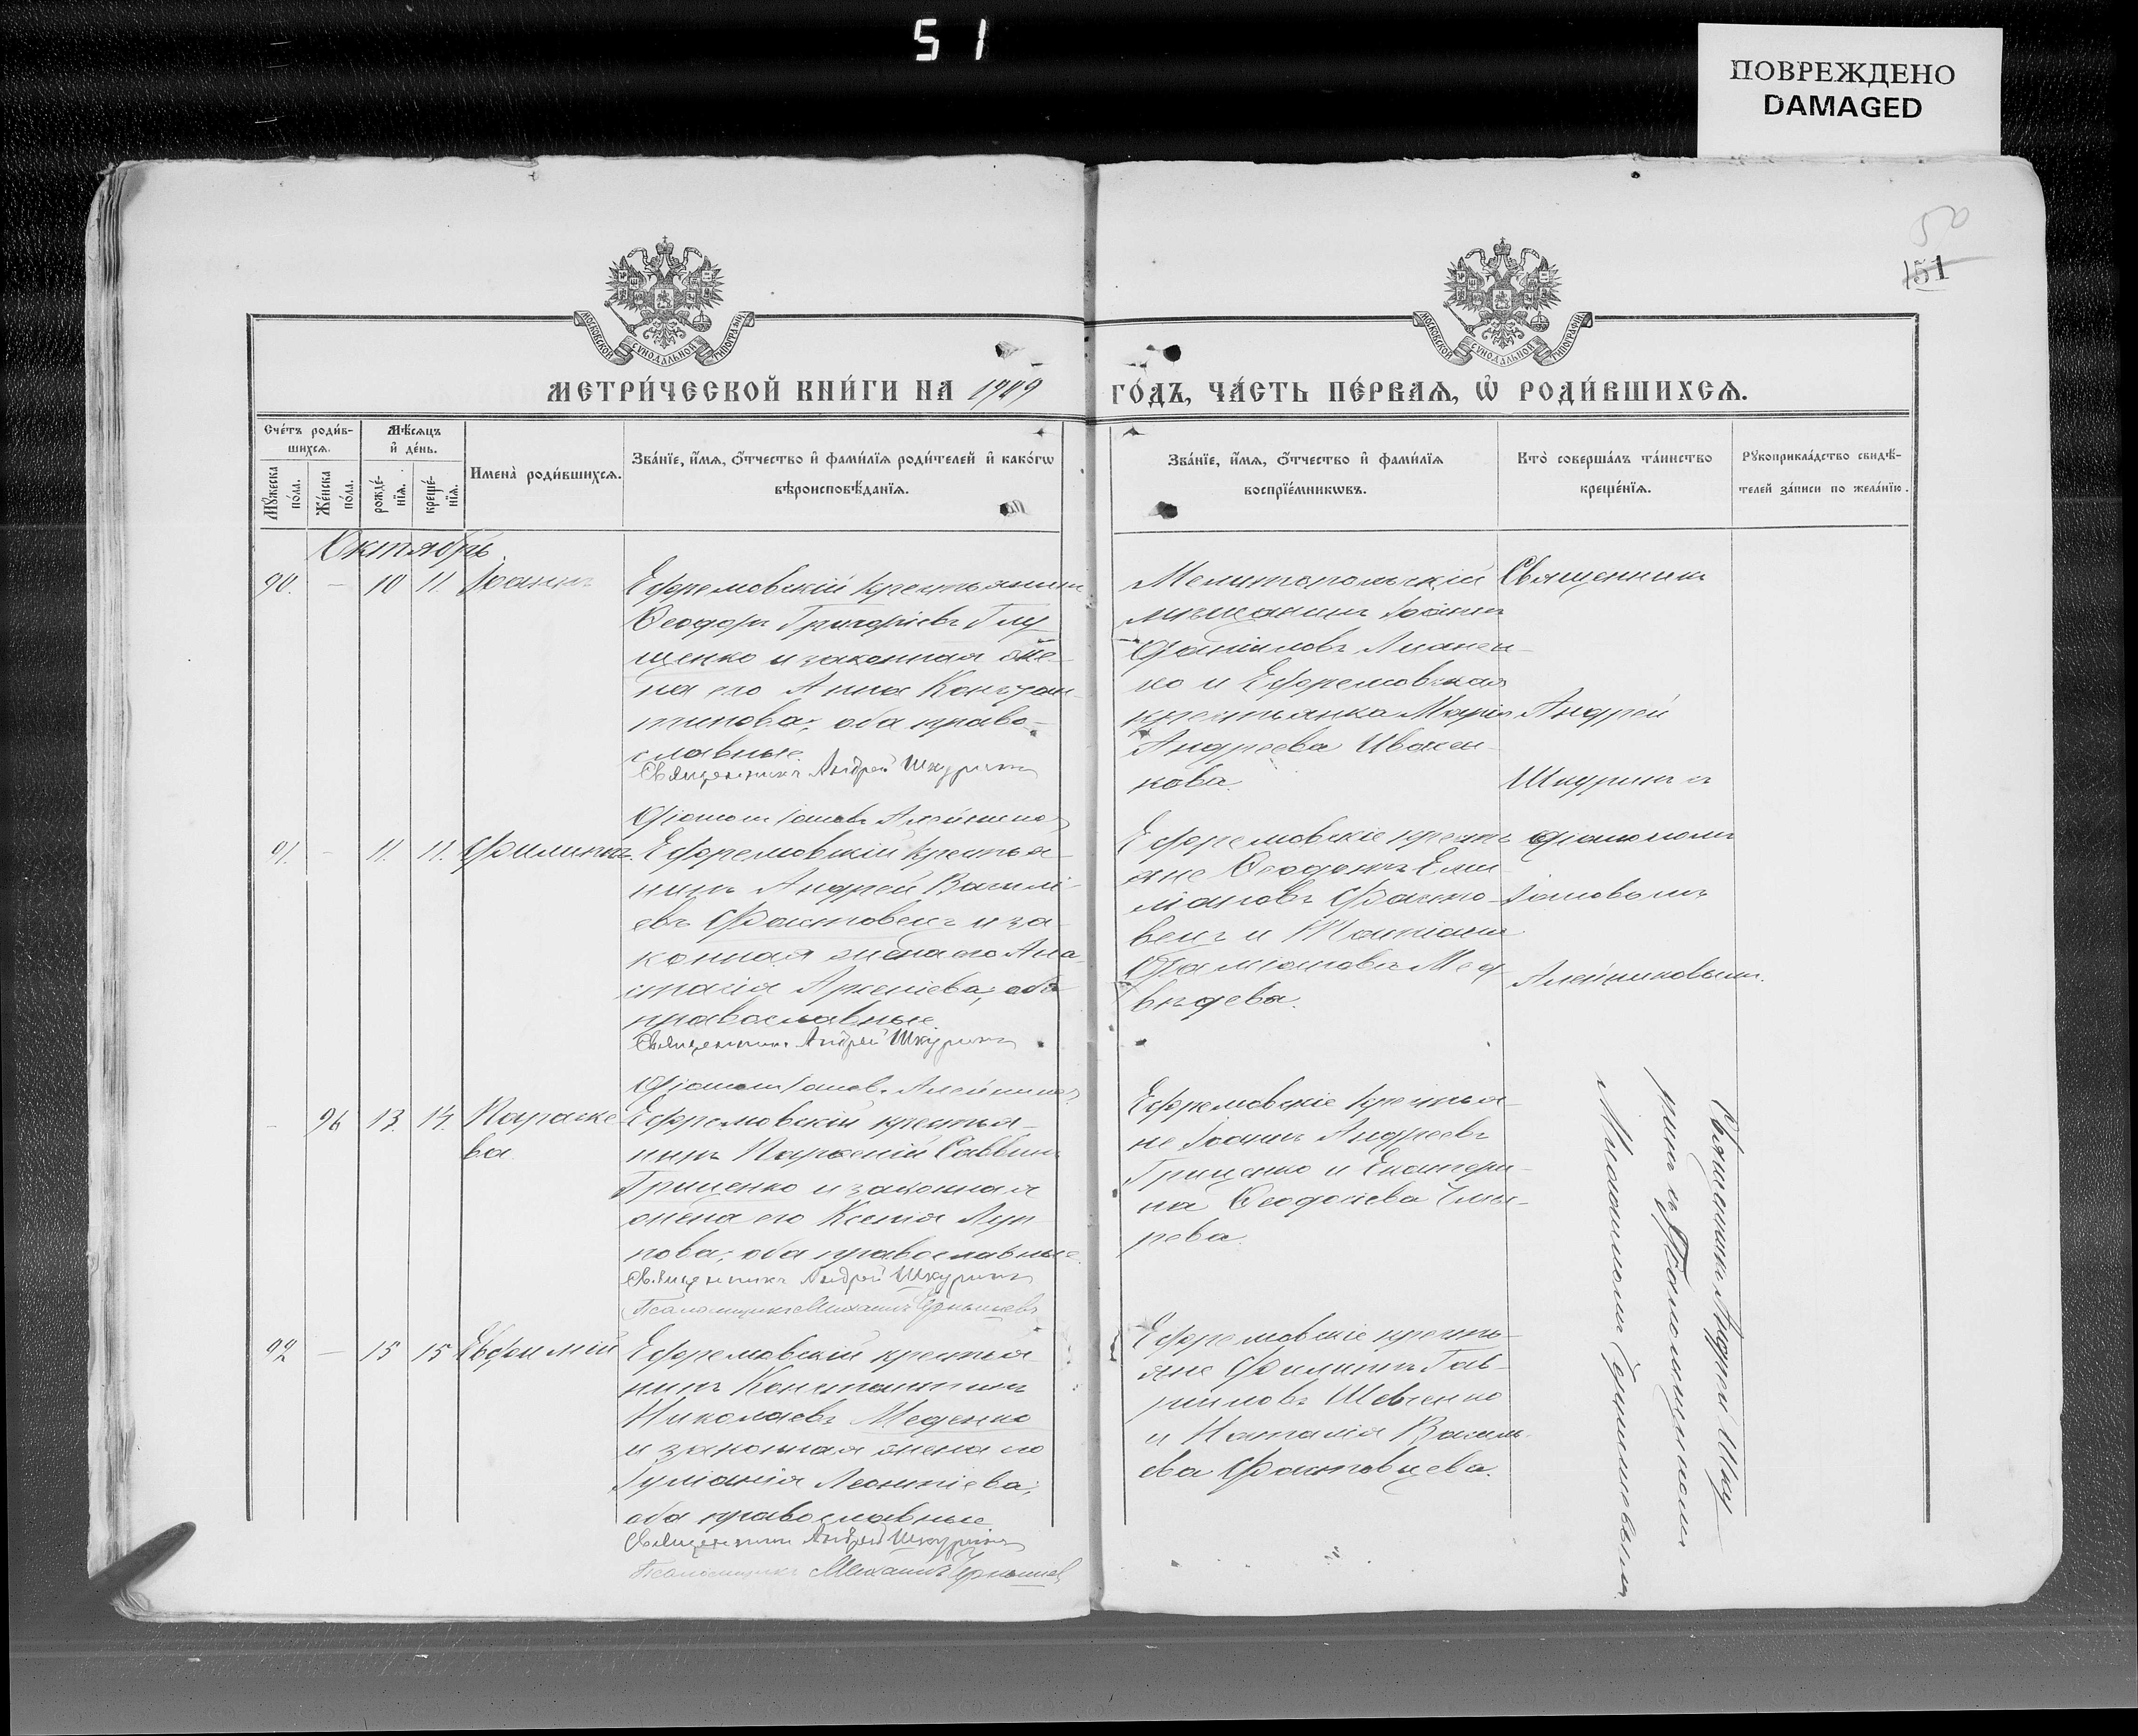 51
ПОВРЕЖДЕНО
DAMAGED
50
151
МОСКОВСКОЙ СѴНОДАЛЬНОЙ ТИПОГРАФІИ
МОСКОВСКОЙ СѴНОДАЛЬНОЙ ТИПОГРАФІИ
МЕТРИ́ЧЕСКОЙ КНИ́ГИ НА 1909 ГО́ДЪ, ЧА́СТЬ ПЕ́РВАѦ, Ѡ҆ РОДИ́ВШИХСѦ.
Сче́тъ роди́в-
шихсѧ.
Мѣ́сѧцъ
и҆ де́нь.
Мꙋ́жеска
по́ла.
Же́нска
по́ла.
рожде́-
нїѧ.
креще́-
нїѧ.
Имена̀ роди́вшихсѧ.
Зва́нїе, и҆́мѧ, ѻ҆́тчество и҆ фами́лїѧ роди́телей и҆ како́гѡ
вѣроисповѣ́данїѧ.
Зва́нїе, и҆́мѧ, ѻ҆́тчество и҆ фами́лїѧ
воспрїе́мникѡвъ.
Кто̀ соверша́лъ та́инство
креще́нїѧ.
Рꙋкоприкла́дство свидѣ́-
телей за́писи по жела́нїю.
Октябрь.
90. — 10 11. Іоаннъ
Ефремовскій крестьянинъ
Ѳеодоръ Григоріевъ Глу
щенко и законная же-
на его Анна Констан-
тинова; оба право-
славные.
Священникъ Андрей Шкуринъ
Діаконъ Іаковъ Алейников
Мелитопольскій
мѣщанинъ Іоаннъ
Даніиловъ
но и Ефремовская
крестьянка Марія
Андреева Ивахен-
кова.
Священникъ
Андрей
Шкуринъ съ
діакономъ
Іаковомъ
Алейниковымъ.
91. — 11. 11. Филиппъ.
Ефремовскій крестья-
нинъ Андрей Василі-
евъ Фастовецъ и за-
конная жена его Ана-
стасія Арсеніева; оба
православные.
Священникъ Андрей Шкуринъ
Діаконъ Іаковъ Алейников
Ефремовскіе кресть
яне Ѳеодотъ Еми
ліановъ Фасто-
вецъ и Татіана
Даміанова Мед
вѣдева.
— 96 13. 14. Параске
ва
Ефремовскій крестья-
нинъ Парѳеній Саввинъ
Гриценко и законная
жена его Ксенія Луп
пова; оба православные.
Священникъ Андрей Шкуринъ
Псаломщикъ Михаилъ Чернышевъ
Ефремовскіе крестья-
не Іоаннъ Андреевъ
Гриценко и Екатери-
на Ѳеодосіева Чмы-
рева.
Священникъ Андрей Шку
ринъ съ Псаломщикомъ
Михаиломъ Чернышевымъ.
92 — 15 15 Евфимій
Ефремовскій крестья
нинъ Константинъ
Николаевъ Меденко
и законная жена его
Іуліанія Леонтіева;
оба православные
Священникъ Андрей Шкуринъ
Псаломщикъ Михаилъ Чернышев
Ефремовскіе кресть-
яне Филиппъ Гав-
рииловъ Шевченко
и Наталія Василь-
ева Фастовцева.